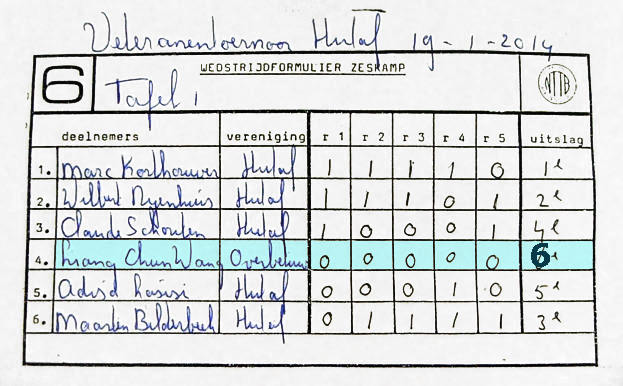 Veteranentoernooi Hutaf 19-1-2014
6 WEDSTRIJDFORMULIER ZESKAMP NTTB
Tafel 1
deelnemers vereniging r 1 r 2 r 3 r 4 r 5 uitslag
1. Marc Korthouwer Hutaf 1 1 1 1 0 1e
2. Wilbert Nyenhuis Hutaf 1 1 1 0 1 2e
3. Claude Schouten Hutaf 1 0 0 0 1 4e
4. Chun Wang 0 0 0 0 0 6e
5. Hutaf 0 0 0 1 0 5e
6. Maarten Bilderbeek Hutaf 0 1 1 1 1 3e